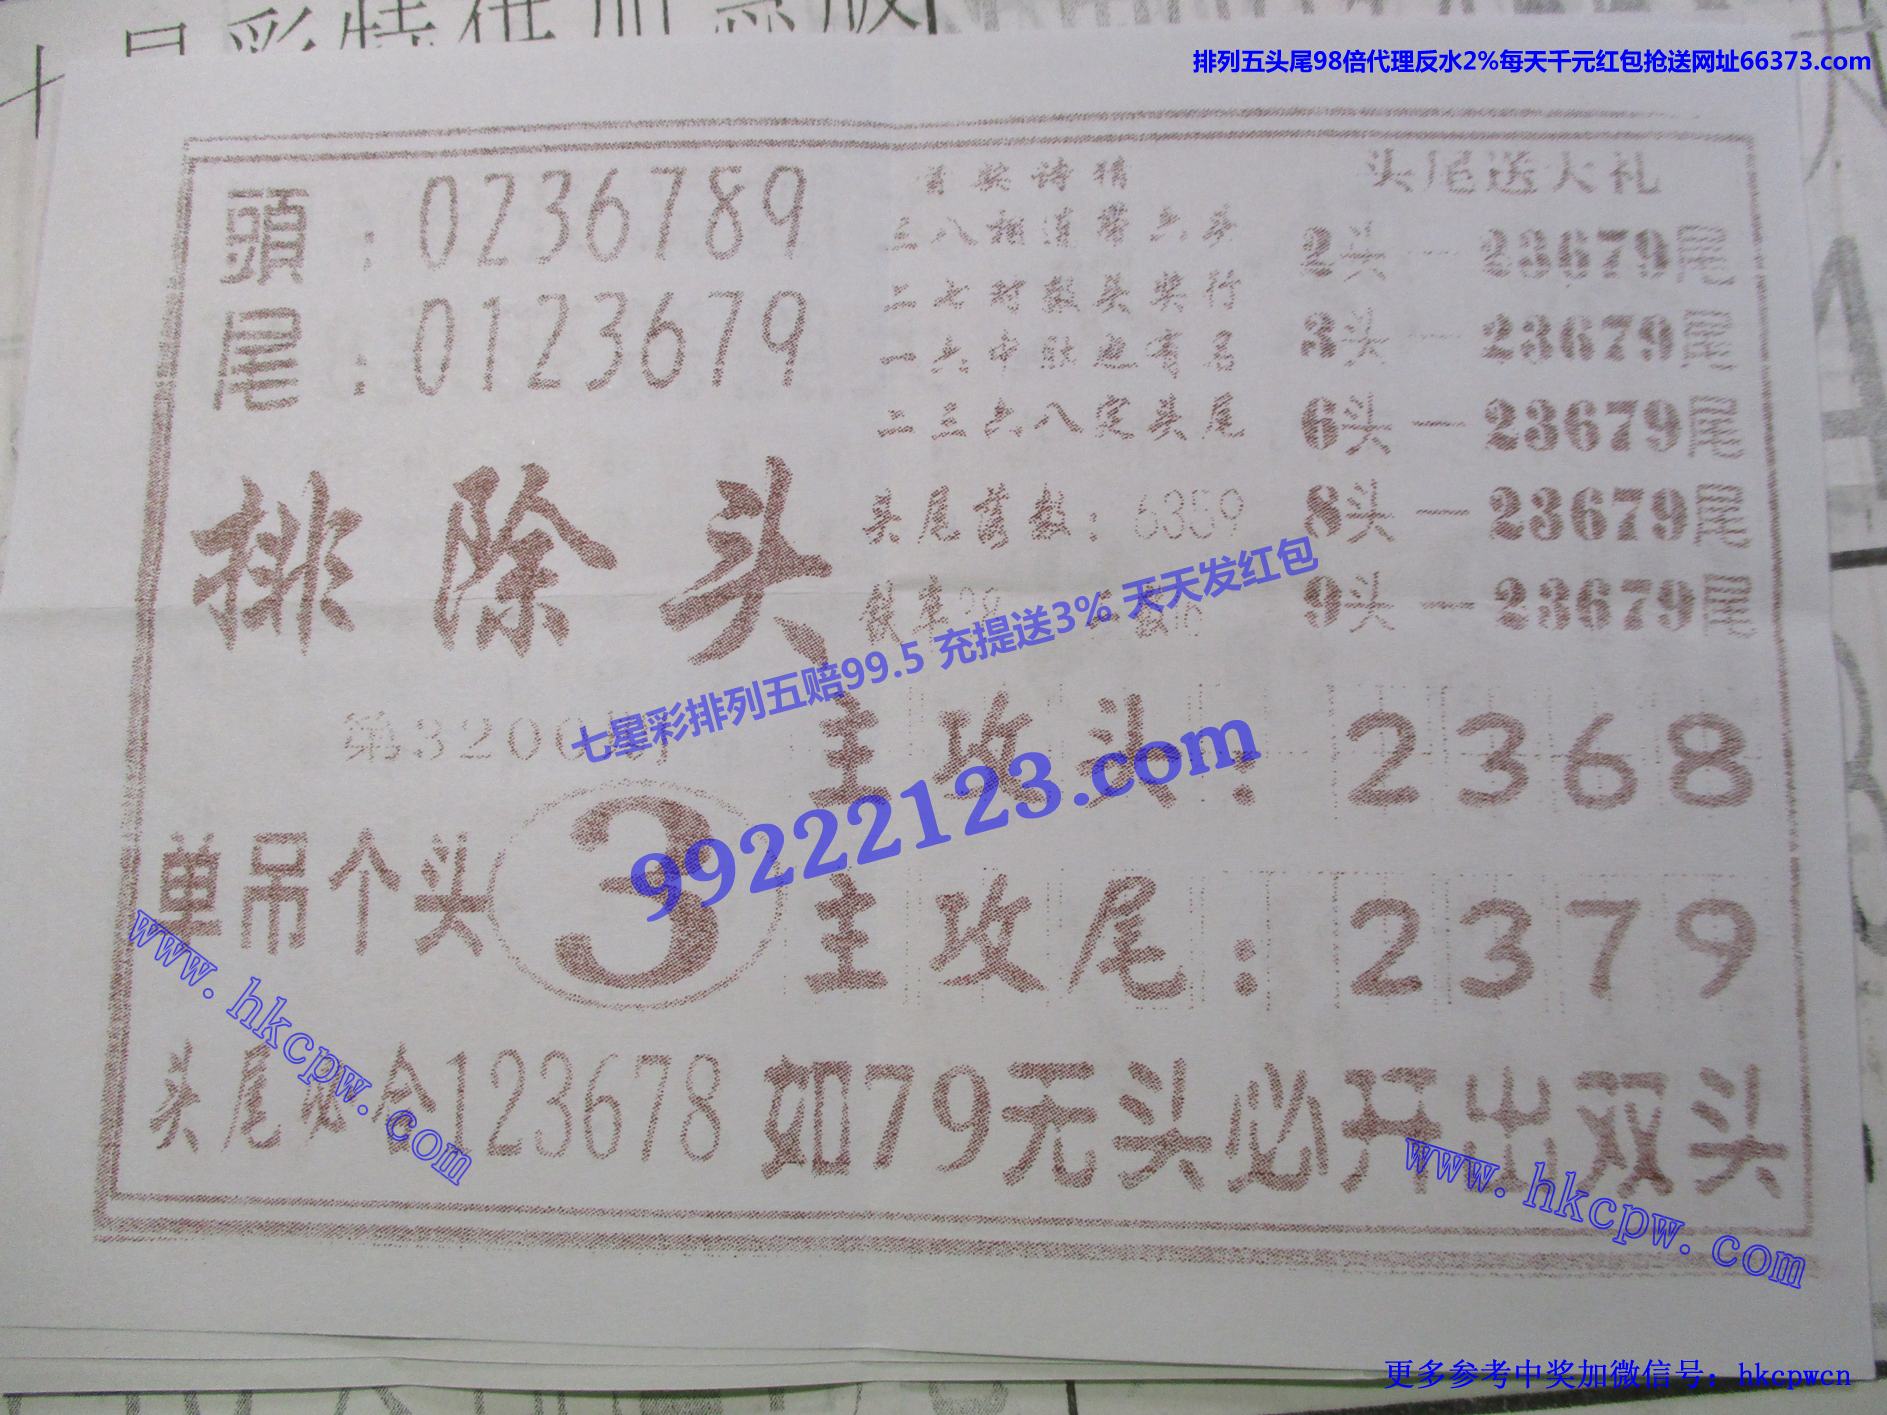 排列五头尾98倍代理反水2%每天千元红包抢送网址66373.com
頭：0236789
尾：0123679
排除头
首奖诗情
三八相道带六步
二七对数头奖行
一六中肚也有名
二三六八定头尾
头尾落数：6359
头尾送大礼
2头—23679尾
3头—23679尾
6头—23679尾
8头—23679尾
9头—23679尾
七星彩排列五赔99.5 充提送3% 天天发红包
99222123.com
单吊个头 3
主攻头：2368
主攻尾：2379
头尾必合123678 如79无头必开出双头
www.hkcpw.com
www.hkcpw.com
更多参考中奖加微信号：hkcpwcn